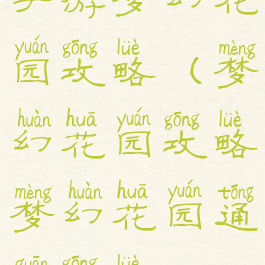 手游梦幻花
yuán gōng lüè mèng
园攻略(梦
huàn huā yuán gōng lüè
幻花园攻略
mèng huàn huā yuán tōng
梦幻花园通
guān gōng lüè